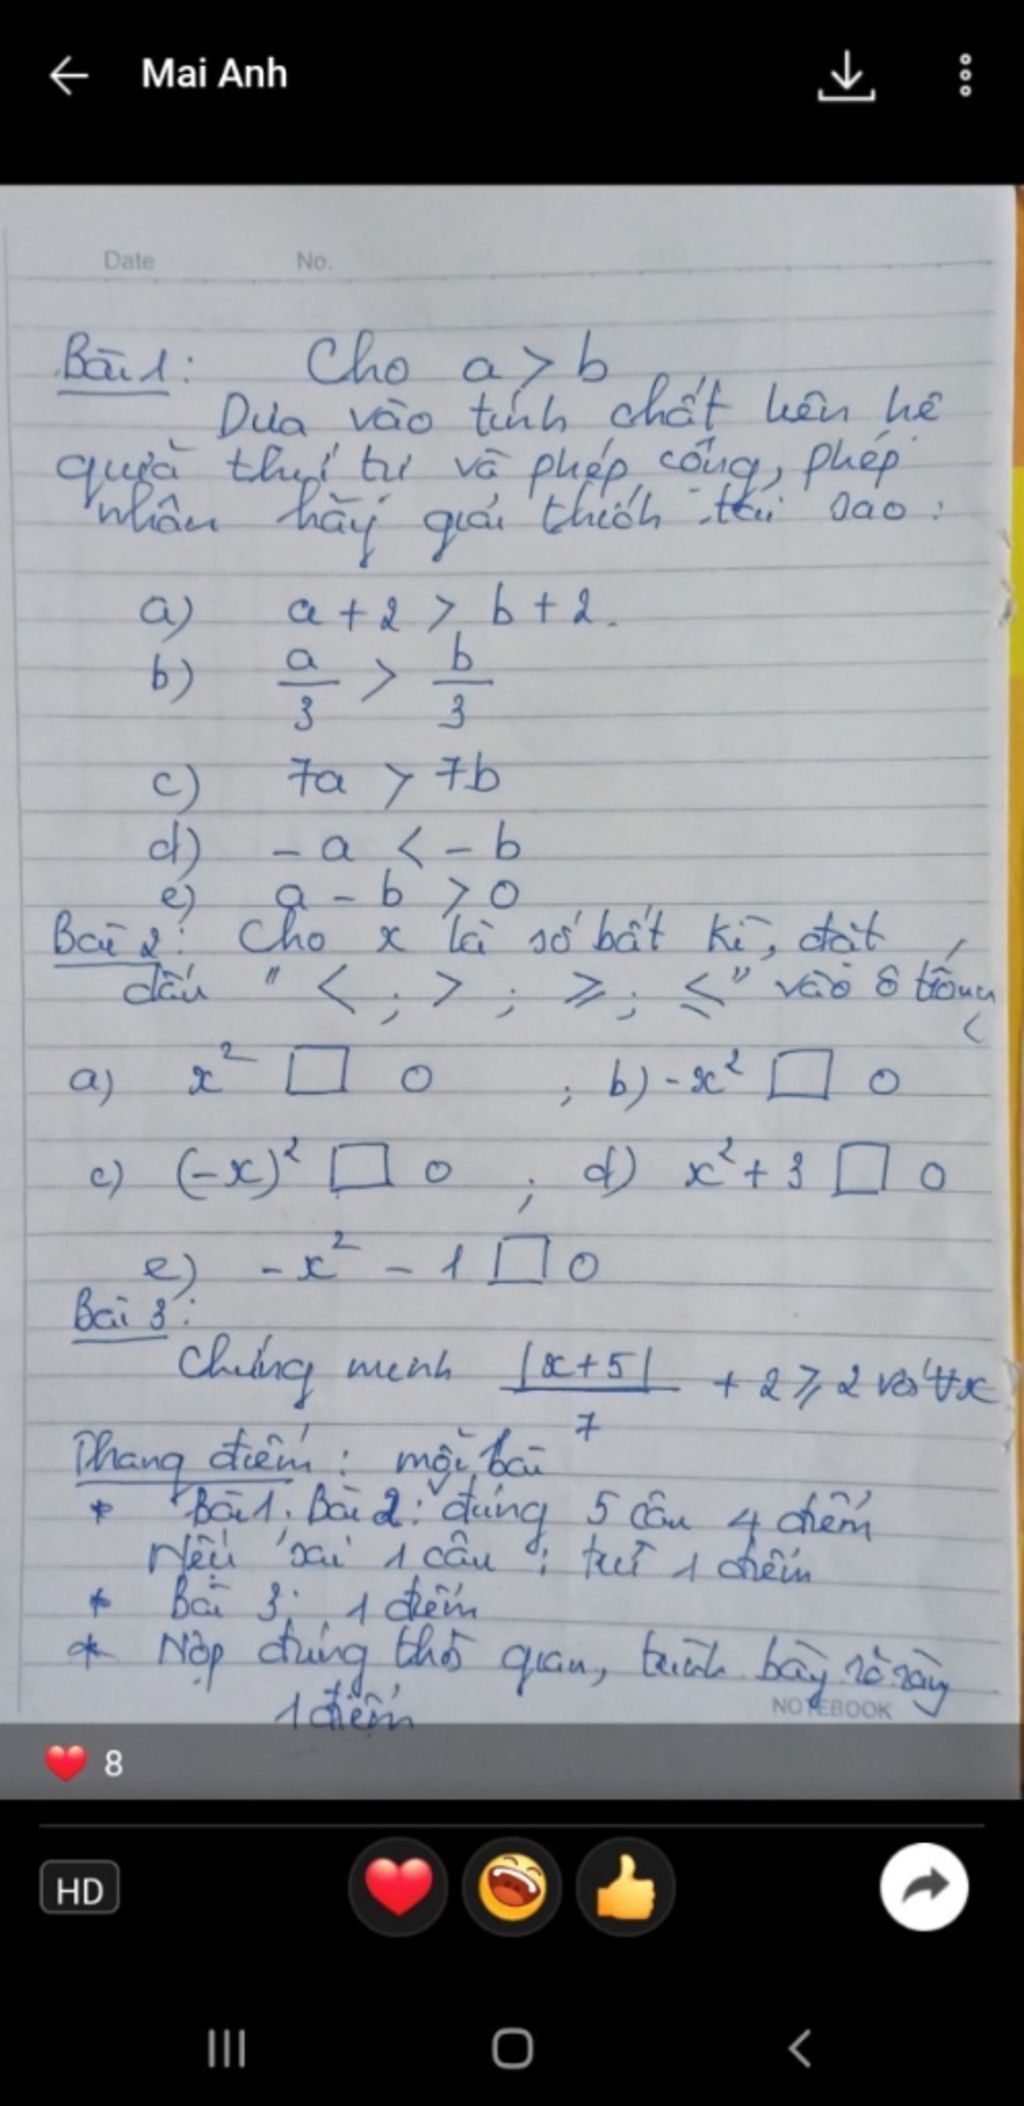 Mai Anh
Date No.
Bài 1: Cho a > b
Dựa vào tính chất liên hệ
giữa thứ tự và phép cộng, phép
nhân hãy giải thích tại sao:
a) a + 2 > b + 2.
b) a/3 > b/3
c) 7a > 7b
d) - a < - b
e) a - b > 0
Bài 2: Cho x là số bất kì, đặt
dấu " < ; > ; ⩾ ; ⩽ " vào ô trống
a) x² □ 0 ; b) -x² □ 0
c) (-x)² □ 0 ; d) x² + 3 □ 0
e) - x² - 1 □ 0
Bài 3:
Chứng minh |x+5|/7 + 2 ⩾ 2 với ∀x
Thang điểm: mỗi bài
* Bài 1. Bài 2: đúng 5 câu 4 điểm
Nếu sai 1 câu : trừ 1 điểm
* Bài 3: 1 điểm
* Nộp đúng thời gian, trình bày rõ ràng
1 điểm
NOTEBOOK
8
HD